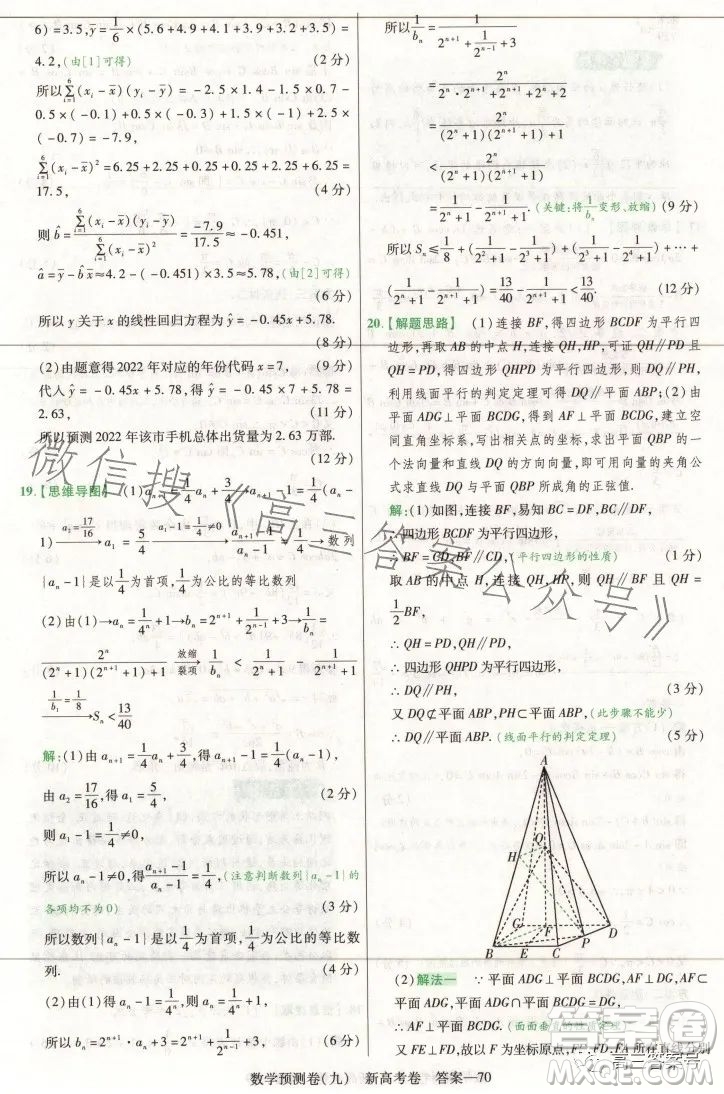 6) = 3.5, y̅ = 1/6 × (5.6 + 4.9 + 4.1 + 3.9 + 3.2 + 3.5) =
4.2, (由[1]可得) (2 分)
所以 ∑_{i=1}^{6}(x_i − x̅)(y_i − y̅) = −2.5 × 1.4 − 1.5 × 0.7 −
0.5 × (−0.1) + 0.5 × (−0.3) + 1.5 × (−1) + 2.5 ×
(−0.7) = −7.9,
∑_{i=1}^{6}(x_i − x̅)² = 6.25 + 2.25 + 0.25 + 0.25 + 2.25 + 6.25 =
17.5, (4 分)
则 b̂ = ∑_{i=1}^{6}(x_i − x̅)(y_i − y̅) / ∑_{i=1}^{6}(x_i − x̅)² = −7.9/17.5 ≈ −0.451,
â = y̅ − b̂x̅ ≈ 4.2 − (−0.451) × 3.5 ≈ 5.78, (由[2]可得)
(6 分)
所以 y 关于 x 的线性回归方程为 ŷ = −0.45x + 5.78.
(8 分)
(2)由题意得 2022 年对应的年份代码 x = 7, (9 分)
代入 ŷ = −0.45x + 5.78, 得 ŷ = −0.45 × 7 + 5.78 =
2.63, (11 分)
所以预测 2022 年该市手机总体出货量为 2.63 万部.
(12 分)
19.【思维导图】(1) a_{n+1} = 1/4 a_n + 3/4 → a_{n+1} − 1 = 1/4 (a_n −
1) —a₂ = 17/16→ a₁ = 5/4 —a₁ − 1 = 1/4 ≠ 0→ (a_{n+1} − 1)/(a_n − 1) = 1/4 → 数列
{a_n − 1}是以 1/4 为首项, 1/4 为公比的等比数列
(2)由(1) → a_n = 1/4ⁿ + 1 → b_n = 2^{n+1} + 1/2^{n−1} + 3 → 1/b_n =
2ⁿ/((2ⁿ + 1)(2^{n+1} + 1) + 1) —放缩 裂项→ 1/b_n < 1/(2ⁿ + 1) − 1/(2^{n+1} + 1)
—1/b₁ = 1/8→ S_n < 13/40
解:(1)由 a_{n+1} = 1/4 a_n + 3/4, 得 a_{n+1} − 1 = 1/4 (a_n − 1),
由 a₂ = 17/16, 得 a₁ = 5/4, (2 分)
则 a₁ − 1 = 1/4 ≠ 0,
所以 a_n − 1 ≠ 0, 得 (a_{n+1} − 1)/(a_n − 1) = 1/4, (注意判断数列{a_n − 1}的
各项均不为 0) (3 分)
所以数列{a_n − 1}是以 1/4 为首项, 1/4 为公比的等比数
列. (4 分)
(2)由(1)得 a_n − 1 = 1/4ⁿ, 则 a_n = 1/4ⁿ + 1,
所以 b_n = 2^{n+1} · a_n + 3 = 2^{n+1} + 1/2^{n−1} + 3, (6 分)
所以 1/b_n = 1/(2^{n+1} + 1/2^{n−1} + 3)
= 2ⁿ/(2ⁿ · 2^{n+1} + 2^{n+1} + 2ⁿ + 2)
< 2ⁿ/((2ⁿ + 1)(2^{n+1} + 1))
= 1/(2ⁿ + 1) − 1/(2^{n+1} + 1). (关键:将 1/b_n 变形、放缩) (9 分)
所以 S_n ≤ 1/8 + (1/(2² + 1) − 1/(2³ + 1)) + ⋯ +
(1/(2ⁿ + 1) − 1/(2^{n+1} + 1)) = 13/40 − 1/(2^{n+1} + 1) < 13/40. (12 分)
20.【解题思路】(1)连接 BF, 得四边形 BCDF 为平行四
边形, 再取 AB 的中点 H, 连接 QH, HP, 可证 QH∥PD 且
QH = PD, 得四边形 QHPD 为平行四边形, 则 DQ∥PH,
利用线面平行的判定定理可得 DQ∥平面 ABP; (2)由
平面 ADG⊥平面 BCDG, 得到 AF⊥平面 BCDG, 建立空
间直角坐标系, 写出相关点的坐标, 求出平面 QBP 的一
个法向量和直线 DQ 的方向向量, 可用向量的夹角公
式求直线 DQ 与平面 QBP 所成角的正弦值.
解:(1)如图, 连接 BF, 易知 BC = DF, BC∥DF,
∴ 四边形 BCDF 为平行四边形,
∴ BF = CD, BF∥CD, (平行四边形的性质) (1 分)
取 AB 的中点 H, 连接 QH, HP, 则 QH∥BF 且 QH =
1/2 BF,
∴ QH = PD, QH∥PD,
∴ 四边形 QHPD 为平行四边形,
∴ DQ∥PH, (3 分)
又 DQ⊄平面 ABP, PH⊂平面 ABP, (此步骤不能少)
∴ DQ∥平面 ABP. (线面平行的判定定理) (5 分)
A
Q
H
G
F
D
P
B
E
C
(2) 解法一 ∵ 平面 ADG⊥平面 BCDG, AF⊥DG, AF⊂
平面 ADG, 平面 ADG∩平面 BCDG = DG,
∴ AF⊥平面 BCDG. (面面垂直的性质定理)
又 FE⊥FD, 故以 F 为坐标原点, FE, FD, FA 所在直线分别
数学预测卷(九) 新高考卷 答案—70
微信搜《高三答案公众号》
答案圈
高三答案号